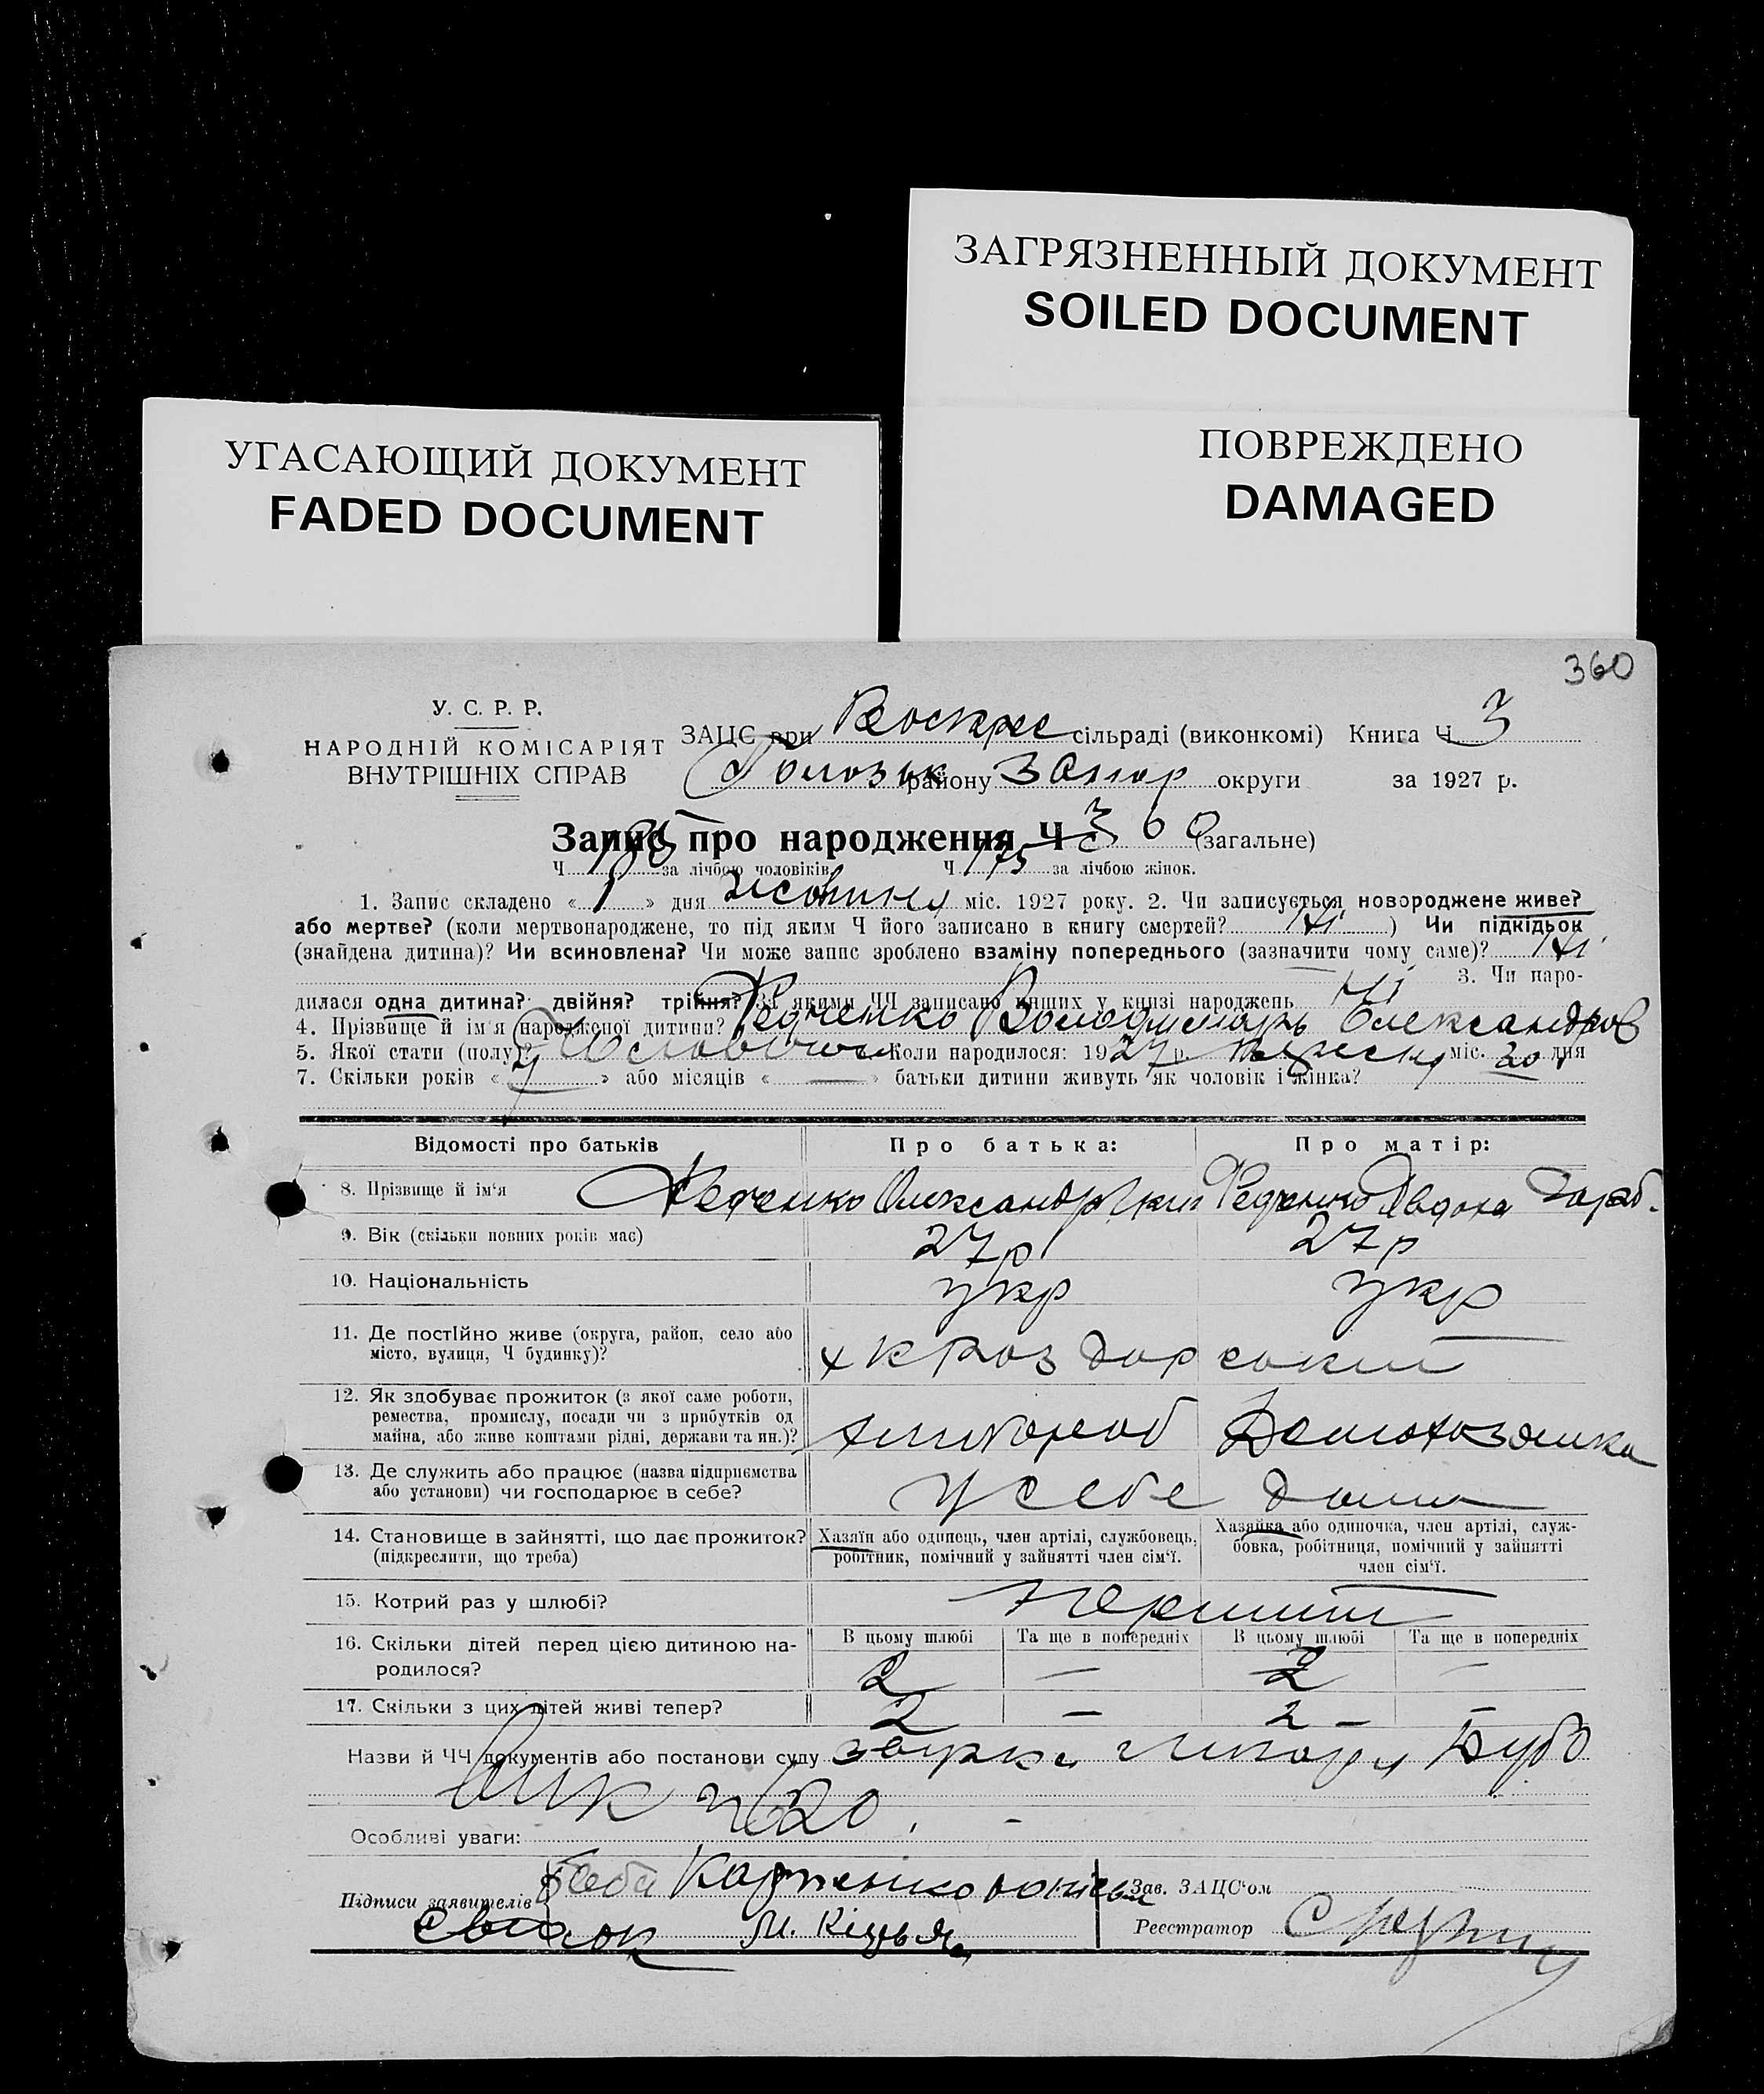 ЗАГРЯЗНЕННЫЙ ДОКУМЕНТ
SOILED DOCUMENT
УГАСАЮЩИЙ ДОКУМЕНТ
FADED DOCUMENT
ПОВРЕЖДЕНО
DAMAGED
360
У. С. Р. Р.
НАРОДНІЙ КОМІСАРІЯТ
ВНУТРІШНІХ СПРАВ
ЗАЦС при Воскрес сільраді (виконкомі) Книга Ч 3
району Запор округи за 1927 р.
Запис про народження Ч 360 (загальне)
Ч за лічбою чоловіків Ч 175 за лічбою жінок.
1. Запис складено « 1 » дня жовтня міс. 1927 року. 2. Чи записується новороджене живе?
або мертве? (коли мертвонароджене, то під яким Ч його записано в книгу смертей? Ні ) Чи підкідьок
(знайдена дитина)? Чи всиновлена? Чи може запис зроблено взаміну попереднього (зазначити чому саме)? Ні
3. Чи наро-
дилася одна дитина? двійня? трійня? За якими ЧЧ записано инших у книзі народжень Ні
4. Прізвище й ім'я народженої дитини? Федченко Володимирь Олександров
5. Якої стати (полу)? Чоловічої Коли народилося: 1927 р. вересня міс. 20 дня
7. Скільки років « 7 » або місяців « — » батьки дитини живуть як чоловік і жінка?
Відомості про батьків Про батька: Про матір:
8. Прізвище й ім'я Федченко Олександр Федченко Явдоха
9. Вік (скільки повних років має) 27 р 27 р
10. Національність укр укр
11. Де постійно живе (округа, район, село або
місто, вулиця, Ч будинку)?
12. Як здобуває прожиток (з якої саме роботи,
ремества, промислу, посади чи з прибутків од
майна, або живе коштами рідні, держави та ин.)?
хлібороб Домохозяйка
13. Де служить або працює (назва підприємства
або установи) чи господарює в себе?
У себе дома
14. Становище в зайнятті, що дає прожиток?
(підкреслити, що треба)
Хазяїн або одинець, член артілі, службовець,
робітник, помічний у зайнятті член сім'ї.
Хазяйка або одиночка, член артілі, служ-
бовка, робітниця, помічний у зайнятті
член сім'ї.
15. Котрий раз у шлюбі? перший
16. Скільки дітей перед цією дитиною на-
родилося?
В цьому шлюбі Та ще в попередніх В цьому шлюбі Та ще в попередніх
2 — 2 —
17. Скільки з цих дітей живі тепер? 2 — 2 —
Назви й ЧЧ документів або постанови суду
20.
Особливі уваги:
Підписи заявителів
Зав. ЗАЦС'ом
Реєстратор